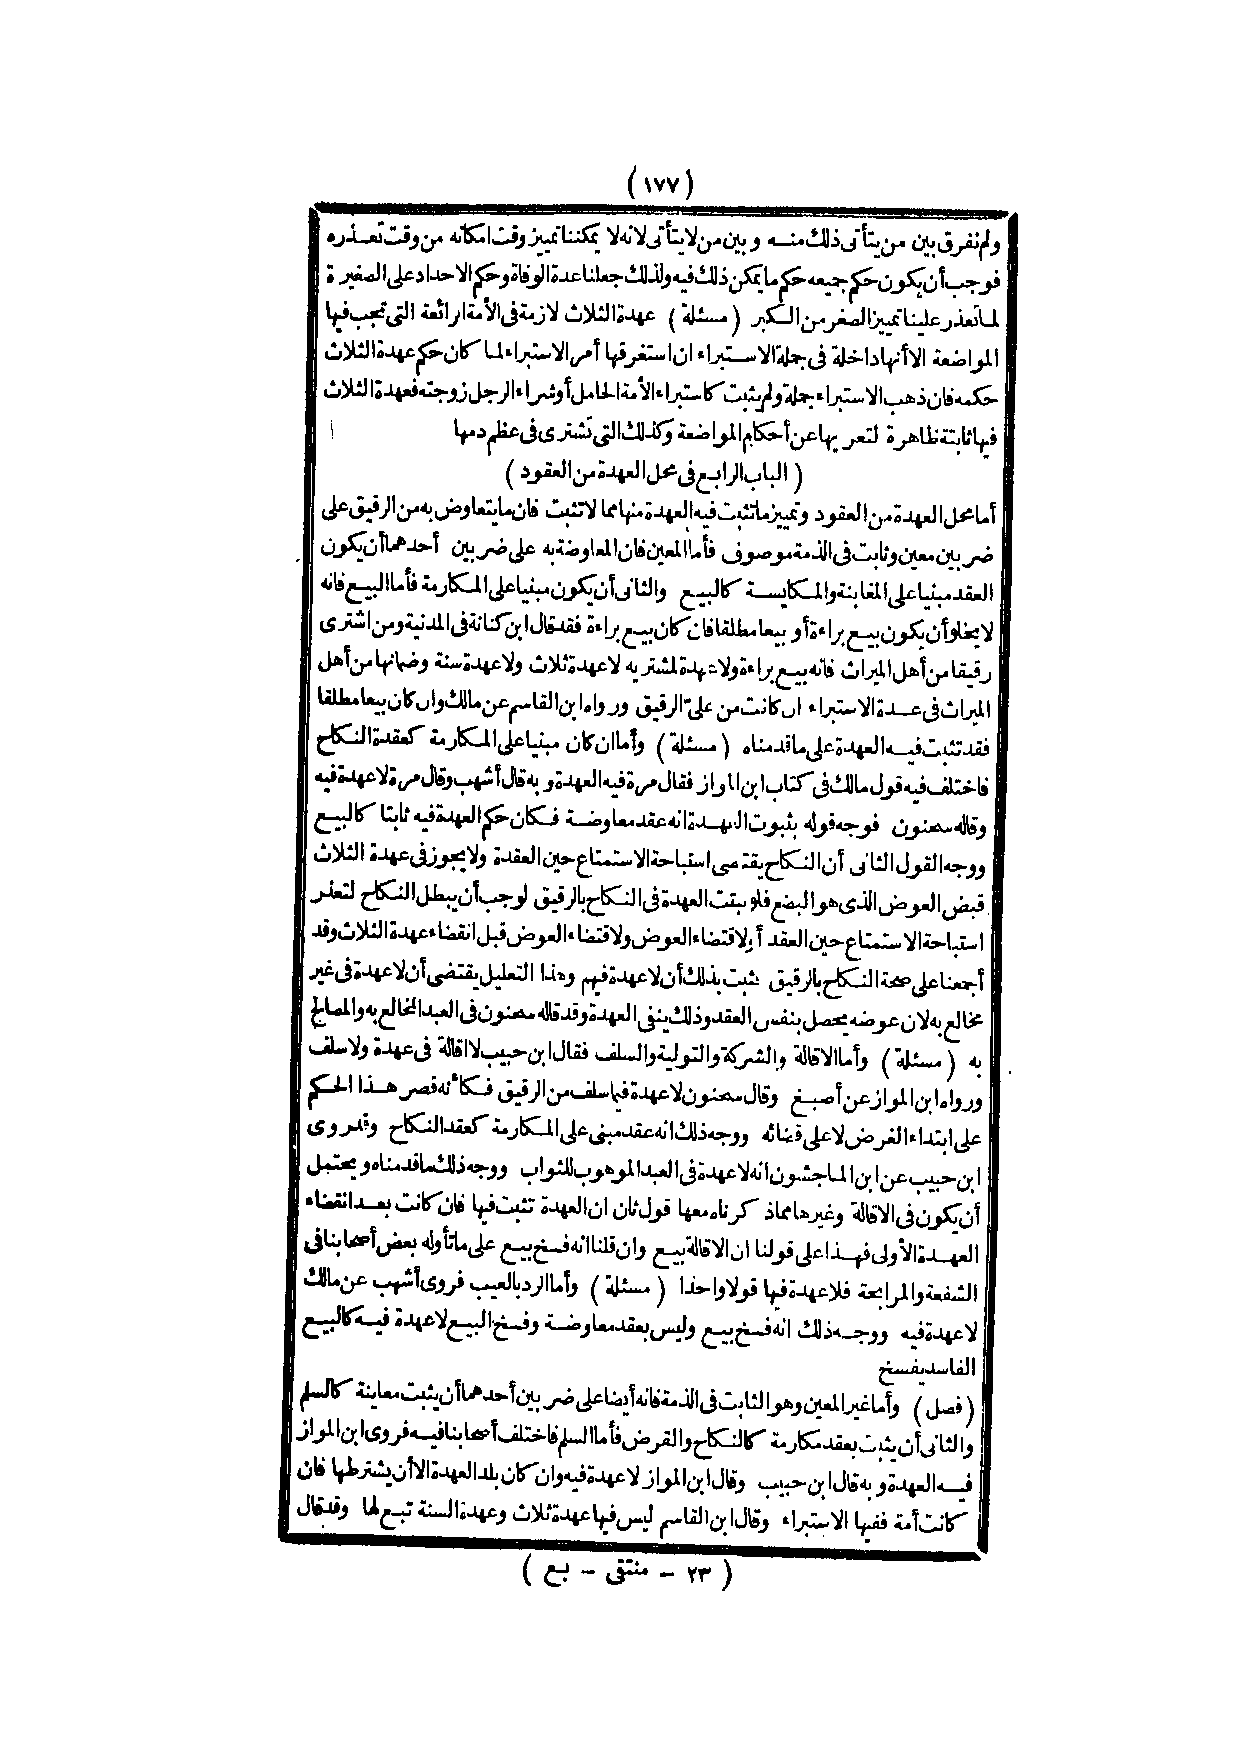 (١٧٧)
ولم نفرق بين من يتأتى ذلك منه وبين من لا يتأتى لانه لا يمكننا تمييز وقت امكانه من وقت تعذره
فوجب أن يكون حكم جميعه حكم ما يمكن ذلك فيه ولذلك جعلنا عدة الوفاة وحكم الاحداد على الصغيرة
لما تعذر علينا تمييز الصغر من الكبر (مسئلة) عهدة الثلاث لازمة فى الأمة الرائعة التى تجب فيها
المواضعة الا أنها داخلة فى جملة الاستبراء ان استغرقها أمر الاستبراء لما كان حكم عهدة الثلاث
حكمه فان ذهب الاستبراء جملة ولم يثبت كاستبراء الأمة الحامل أو شراء الرجل زوجته فعهدة الثلاث
فيها ثابتة ظاهرة لتعريها عن أحكام المواضعة وكذلك التى تشترى فى عظم دمها
(الباب الرابع فى محل العهدة من العقود)
أما محل العهدة من العقود وتمييز ما تثبت فيه العهدة منها مما لا تثبت فان ما يتعاوض به من الرقيق على
ضربين معين وثابت فى الذمة موصوف فأما المعين فان المعاوضة به على ضربين أحدهما أن يكون
العقد مبنيا على المغابنة والمكايسة كالبيع والثانى أن يكون مبنيا على المكارمة فأما البيع فانه
لا يخلو أن يكون بيع براءة أو بيعا مطلقا فان كان بيع براءة فقد قال ابن كنانة فى المدنية ومن اشترى
رقيقا من أهل الميراث فانه بيع براءة ولا عهدة لمشتريه لا عهدة ثلاث ولا عهدة سنة وضمانها من أهل
الميراث فى عدة الاستبراء ان كانت من علىّ الرقيق ورواه ابن القاسم عن مالك وان كان بيعا مطلقا
فقد تثبت فيه العهدة على ما قدمناه (مسئلة) وأما ان كان مبنيا على المكارمة كعقدة النكاح
فاختلف فيه قول مالك فى كتاب ابن المواز فقال مرة فيه العهدة وبه قال أشهب وقال مرة لا عهدة فيه
وقاله سحنون فوجه قوله بثبوت العهدة انه عقد معاوضة فكان حكم العهدة فيه ثابتا كالبيع
ووجه القول الثانى أن النكاح يقتضى استباحة الاستمتاع حين العقدة ولا يجوز فى عهدة الثلاث
قبض العوض الذى هو البضع فلو بقت العهدة فى النكاح بالرقيق لوجب أن يبطل النكاح لتعذر
استباحة الاستمتاع حين العقد أو لا قتضاء العوض ولا قتضاء العوض قبل انقضاء عهدة الثلاث وقد
أجمعنا على صحة النكاح بالرقيق ثبت بذلك أن لا عهدة فيهم وهذا التعليل يقتضى أن لا عهدة فى غير
مخالع به لان عوضه يحصل بنفس العقد وذلك ينفى العهدة وقد قاله سحنون فى العبد المخالع به والمصالح
به (مسئلة) وأما الاقالة والشركة والتولية والسلف فقال ابن حبيب لا اقالة فى عهدة ولا سلف
ورواه ابن المواز عن أصبغ وقال سحنون لا عهدة فيما سلف من الرقيق فكأنه قصر هذا الحكم
على ابتداء الغرض لا على قضائه ووجه ذلك انه عقد مبنى على المكارمة كعقد النكاح وقد روى
ابن حبيب عن ابن الماجشون انه لا عهدة فى العبد الموهوب للثواب ووجه ذلك ما قدمناه ويحتمل
أن يكون فى الاقالة وغيرها مما ذكرناه معها قول ثان ان العهدة تثبت فيها فان كانت بعد انقضاء
العهدة الأولى فهذا على قولنا ان الاقالة بيع وان قلنا انه فسخ بيع على ما تأوله بعض أصحابنا فى
الشفعة والمرابحة فلا عهدة فيها قولا واحدا (مسئلة) وأما الرد بالعيب فروى أشهب عن مالك
لا عهدة فيه ووجه ذلك انه فسخ بيع وليس بعقد معاوضة وفسخ البيع لا عهدة فيه كالبيع
الفاسد يفسخ
(فصل) وأما غير المعين وهو الثابت فى الذمة فانه أيضا على ضربين أحدهما أن يثبت معاينة كالسلم
والثانى أن يثبت بعقد مكارمة كالنكاح والقرض فأما السلم فاختلف أصحابنا فيه فروى ابن المواز
فيه العهدة وبه قال ابن حبيب وقال ابن المواز لا عهدة فيه وان كان بلد العهدة الا أن يشترطها فان
كانت أمة ففيها الاستبراء وقال ابن القاسم ليس فيها عهدة ثلاث وعهدة السنة تبع لها وقد قال
(٢٣ - منتقى - بع)